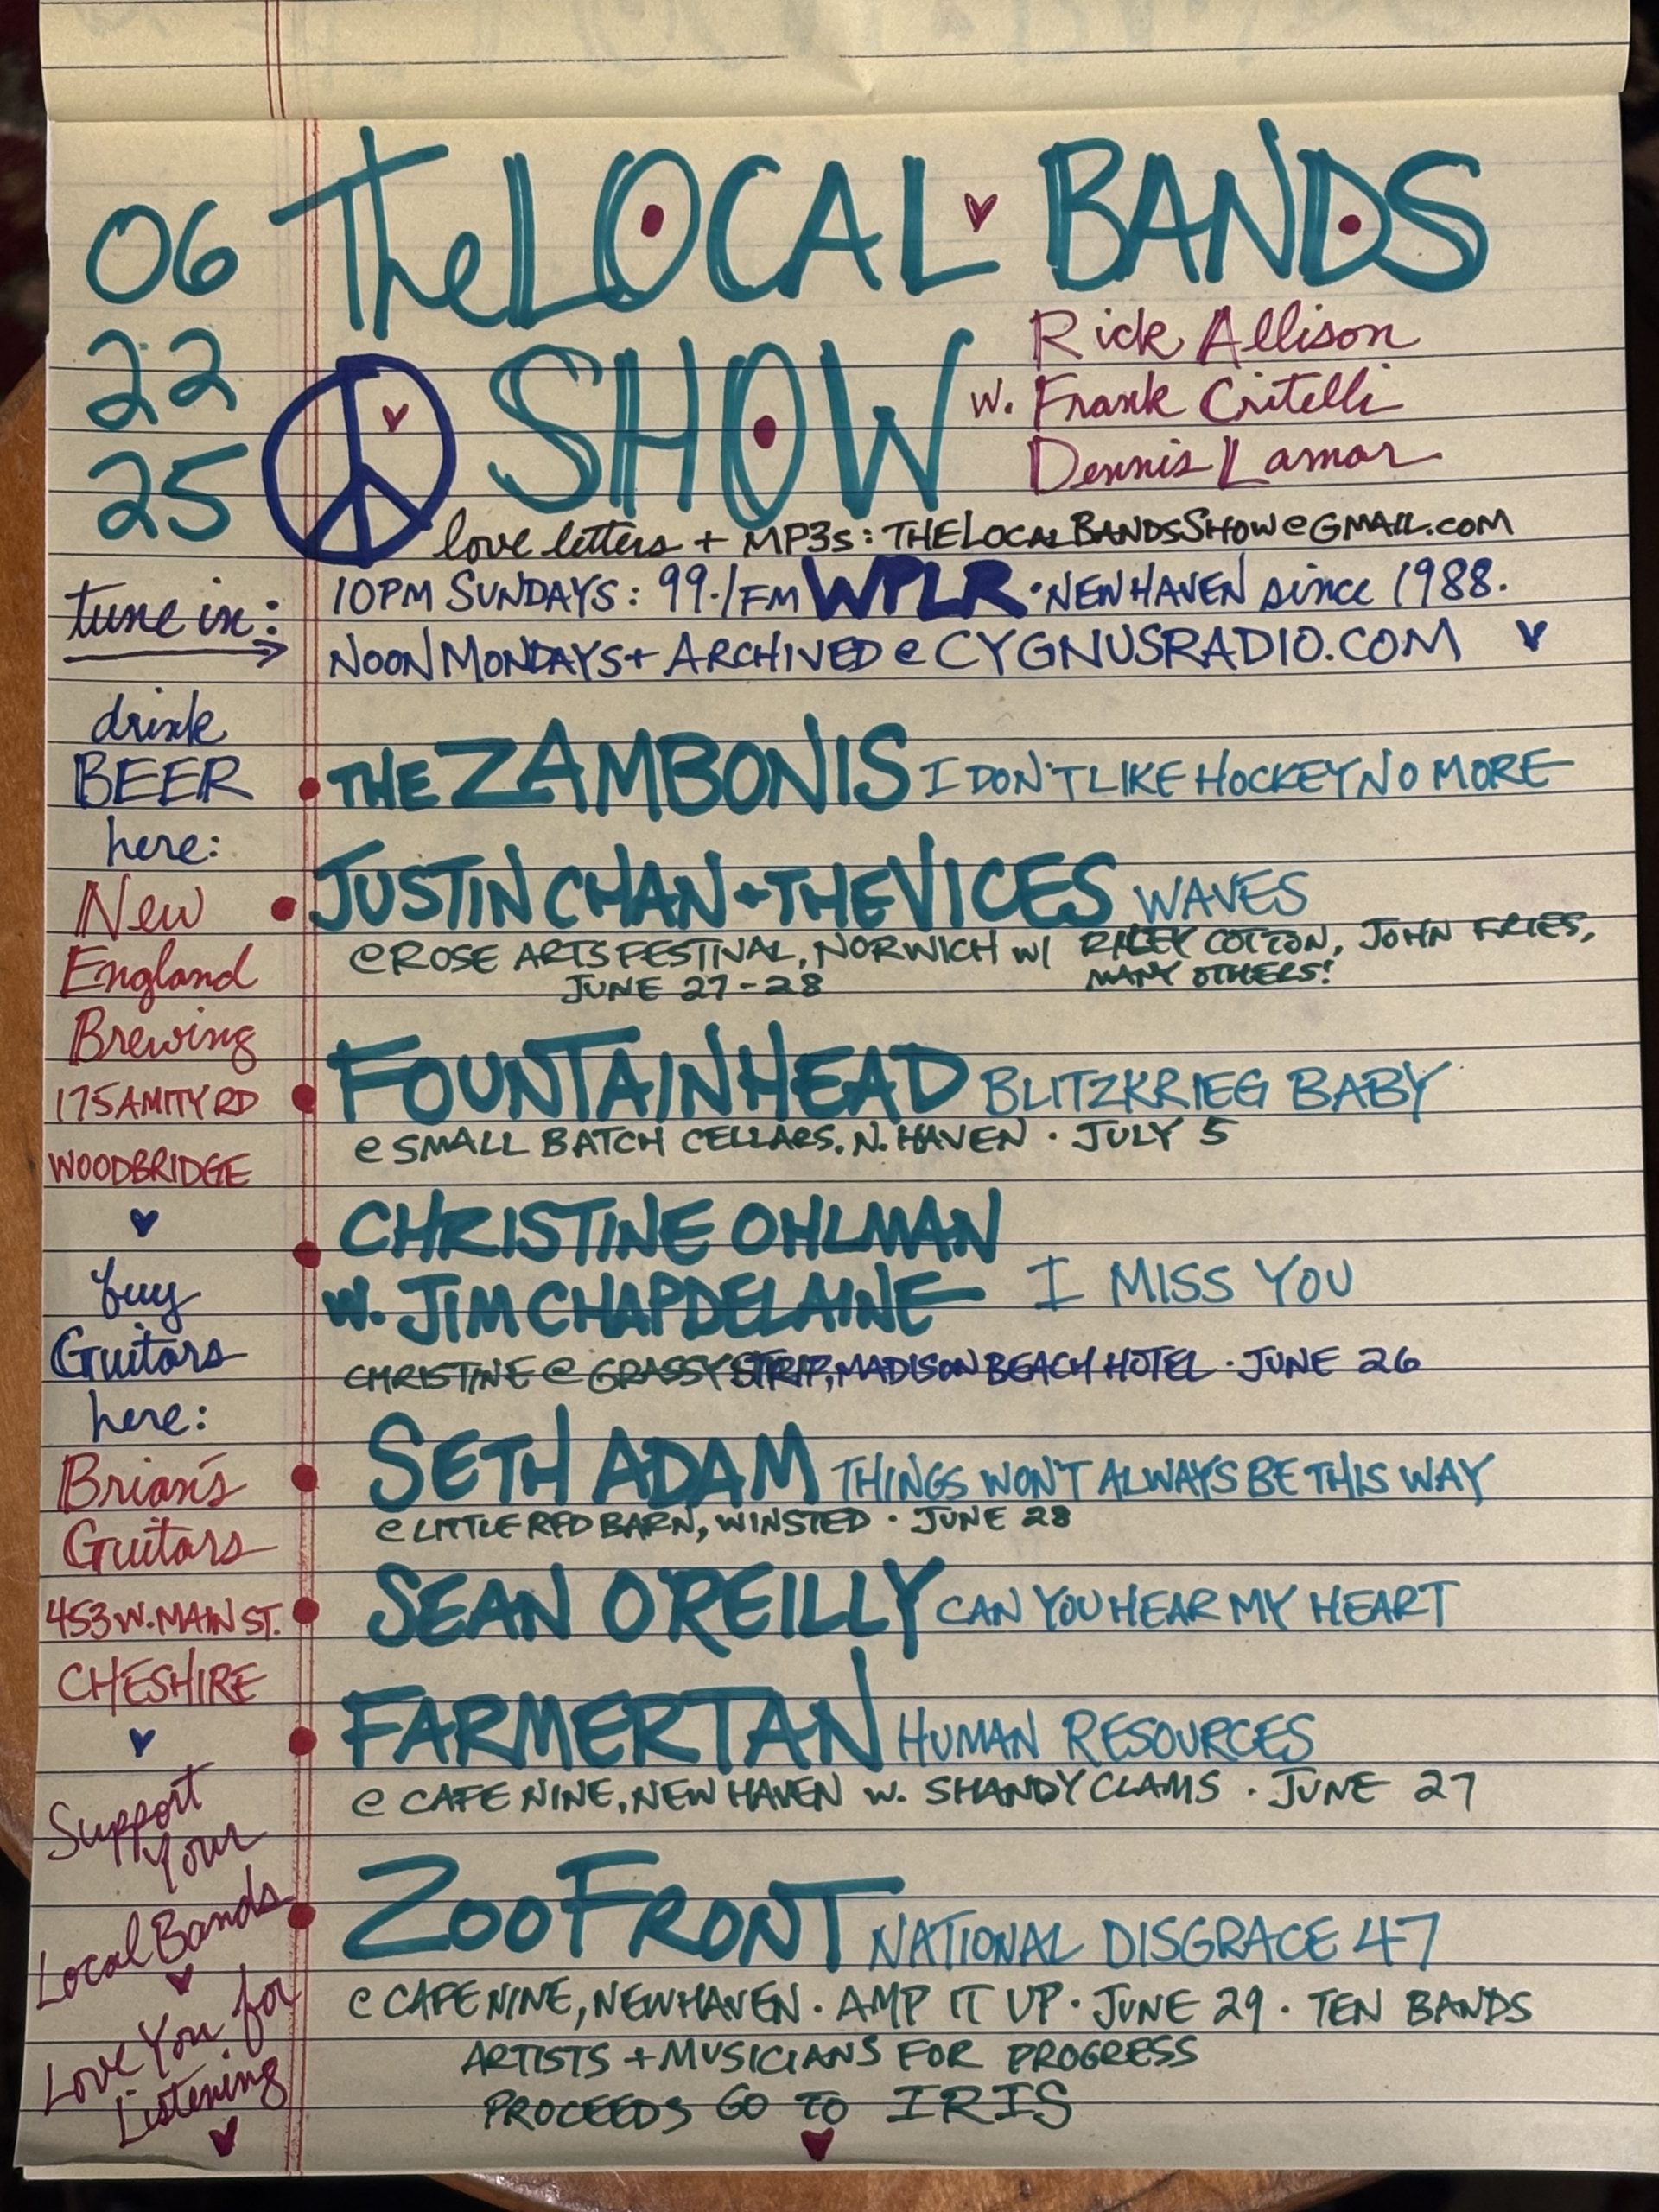 06
22
25
The LOCAL BANDS
SHOW
Rick Allison
w. Frank Critelli
Dennis Lamar
love letters + MP3s: THELOCALBANDSSHOW@GMAIL.COM
tune in:
10PM SUNDAYS: 99.1FM WPLR • NEW HAVEN since 1988.
NOON MONDAYS + ARCHIVED @ CYGNUSRADIO.COM
drink
BEER
here:
New
England
Brewing
175 AMITY RD
WOODBRIDGE
buy
Guitars
here:
Brian's
Guitars
453 W. MAIN ST.
CHESHIRE
Support
Your
Local Bands
Love You for
Listening
THE ZAMBONIS I DON'T LIKE HOCKEY NO MORE
JUSTIN CHAN + THE VICES WAVES
@ ROSE ARTS FESTIVAL, NORWICH w/ RILEY COTTON, JOHN FRIES,
JUNE 27-28 MANY OTHERS!
FOUNTAINHEAD BLITZKRIEG BABY
@ SMALL BATCH CELLARS, N. HAVEN · JULY 5
CHRISTINE OHLMAN
W. JIM CHAPDELAINE I MISS YOU
CHRISTINE @ GRASSY STRIP, MADISON BEACH HOTEL · JUNE 26
SETH ADAM THINGS WON'T ALWAYS BE THIS WAY
@ LITTLE RED BARN, WINSTED · JUNE 28
SEAN O'REILLY CAN YOU HEAR MY HEART
FARMERTAN HUMAN RESOURCES
@ CAFE NINE, NEW HAVEN w. SHANDY CLAMS · JUNE 27
ZOO FRONT NATIONAL DISGRACE 47
@ CAFE NINE, NEW HAVEN · AMP IT UP · JUNE 29 · TEN BANDS
ARTISTS + MUSICIANS FOR PROGRESS
PROCEEDS GO TO IRIS